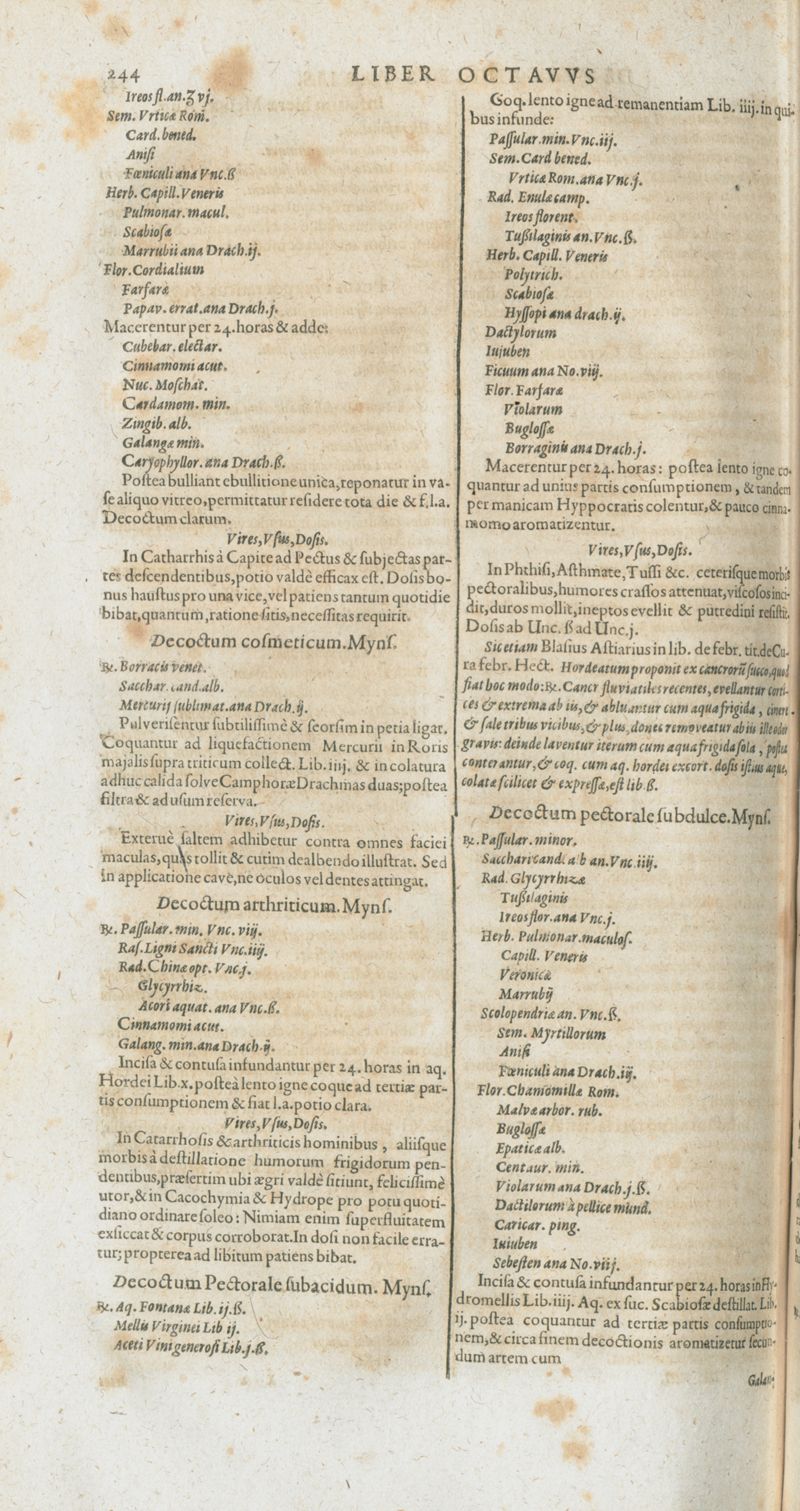 244 LIBER OCTAVVS
Ireos fl.an.ʒ vj.
Sem. Vrticæ Rom.
Card. bened.
Anisi
Fœniculi ana Vnc.ß
Herb. Capill. Veneris
Pulmonar. macul.
Scabiosæ
Marrubii ana Drach.ij.
Flor. Cordialium
Farfaræ
Papav. errat. ana Drach.j.
Macerentur per 24. horas & adde:
Cubebar. electar.
Cinnamomi acut.
Nuc. Moschat.
Cardamom. min.
Zingib. alb.
Galangæ min.
Caryophyllor. ana Drach.ß.
Postea bulliant ebullitione unica, reponatur in va-
se aliquo vitreo, permittatur residere tota die & f.l.a.
Decoctum clarum.
Vires, Vsus, Dosis.
In Catharrhis à Capite ad Pectus & subjectas par-
tes descendentibus, potio valdè efficax est. Dosis bo-
nus haustus pro una vice, vel patiens tantum quotidie
bibat, quantum, ratione sitis, necessitas requirit.
Decoctum cosmeticum. Myns.
℞. Borracis venet.
Sacchar. cand. alb.
Mercurij sublimat. ana Drach.ij.
Pulverisentur subtilissimè & seorsim in petia ligat.
Coquantur ad liquefactionem Mercurii in Roris
majalis supra triticum collect. Lib. iiij. & in colatura
adhuc calida solve Camphoræ Drachmas duas; postea
filtra & ad usum reserva.
Vires, Vsus, Dosis.
Exteruè saltem adhibetur contra omnes faciei
maculas, quas tollit & cutim dealbendo illustrat. Sed
in applicatione cavè, ne oculos vel dentes attingat.
Decoctum arthriticum. Myns.
℞. Passular. min. Vnc. viij.
Ras. Ligni Sancti Vnc. iiij.
Rad. Chinæ opt. Vnc.j.
Glycyrrhiz.
Acori aquat. ana Vnc.ß.
Cinnamomi acut.
Galang. min. ana Drach.ij.
Incisa & contusa infundantur per 24. horas in aq.
Hordei Lib.x. posteà lento igne coque ad tertiæ par-
tis consumptionem & fiat l.a. potio clara.
Vires, Vsus, Dosis.
In Catarrhosis & arthriticis hominibus, aliisque
morbis à destillatione humorum frigidorum pen-
dentibus, præsertim ubi ægri valdè sitiunt, felicissimè
utor, & in Cacochymia & Hydrope pro potu quoti-
diano ordinare soleo: Nimiam enim superfluitatem
exsiccat & corpus corroborat. In dosi non facile erra-
tur; propterea ad libitum patiens bibat.
Decoctum Pectorale subacidum. Myns.
℞. Aq. Fontanæ Lib. ij.ß.
Mellis Virginei Lib ij.
Aceti Vini generosi Lib.j.ß.
Coq. lento igne ad remanentiam Lib. iiij. in qui-
bus infunde:
Passular. min. Vnc. iij.
Sem. Card bened.
Vrticæ Rom. ana Vnc.j.
Rad. Enulæ camp.
Ireos florent.
Tussilaginis an. Vnc.ß.
Herb. Capill. Veneris
Polytrich.
Scabiosæ
Hyssopi ana drach.ij.
Dactylorum
Iujuben
Ficuum ana No. viij.
Flor. Farfaræ
Violarum
Buglossæ
Borraginis ana Drach.j.
Macerentur per 24. horas: postea lento igne co-
quantur ad unius partis consumptionem, & tandem
per manicam Hyppocratis colentur, & pauco cinna-
momo aromatizentur.
Vires, Vsus, Dosis.
In Phthisi, Asthmate, Tussi &c. ceterisque morbis
pectoralibus, humores crassos attenuat, viscosos inci-
dit, duros mollit, ineptos evellit & putredini resistit.
Dosis ab Unc. ß ad Unc.j.
Sic etiam Blasius Astiarius in lib. de febr. tit. de Cu-
ra febr. Hect. Hordeatum proponit ex cancrorũ succo, quod
fiat hoc modo: ℞. Cancr fluviatiles recentes, evellantur corti-
ces & extrema ab iis, & abluantur cum aqua frigida,
& sale tribus vicibus, & plus, donec removeatur ab iis ille odor
gravis: deinde laventur iterum cum aqua frigida sola, postea
conterantur, & coq. cum aq. hordei excort. dosis istius aquæ,
colatæ scilicet & expressæ, est lib.ß.
Decoctum pectorale subdulce. Myns.
℞. Passular. minor.
Sacchari cand. a b an. Vnc iiij.
Rad. Glycyrrhizæ
Tussilaginis
Ireos flor. ana Vnc.j.
Herb. Pulmonar. maculos.
Capill. Veneris
Veronicæ
Marrubij
Scolopendriæ an. Vnc.ß.
Sem. Myrtillorum
Anisi
Fœniculi ana Drach.iij.
Flor. Chamomillæ Rom.
Malvæ arbor. rub.
Buglossæ
Epaticæ alb.
Centaur. min.
Violarum ana Drach.j.ß.
Dactilorum à pellice mund.
Caricar. ping.
Iuiuben
Sebesten ana No. viij.
Incisa & contusa infundantur per 24. horas in Hy-
dromellis Lib. iiij. Aq. ex suc. Scabiosæ destillat. Lib.
ij. postea coquantur ad tertiæ partis consumptio-
nem, & circa finem decoctionis aromatizetur secun-
dum artem cum
Galan-